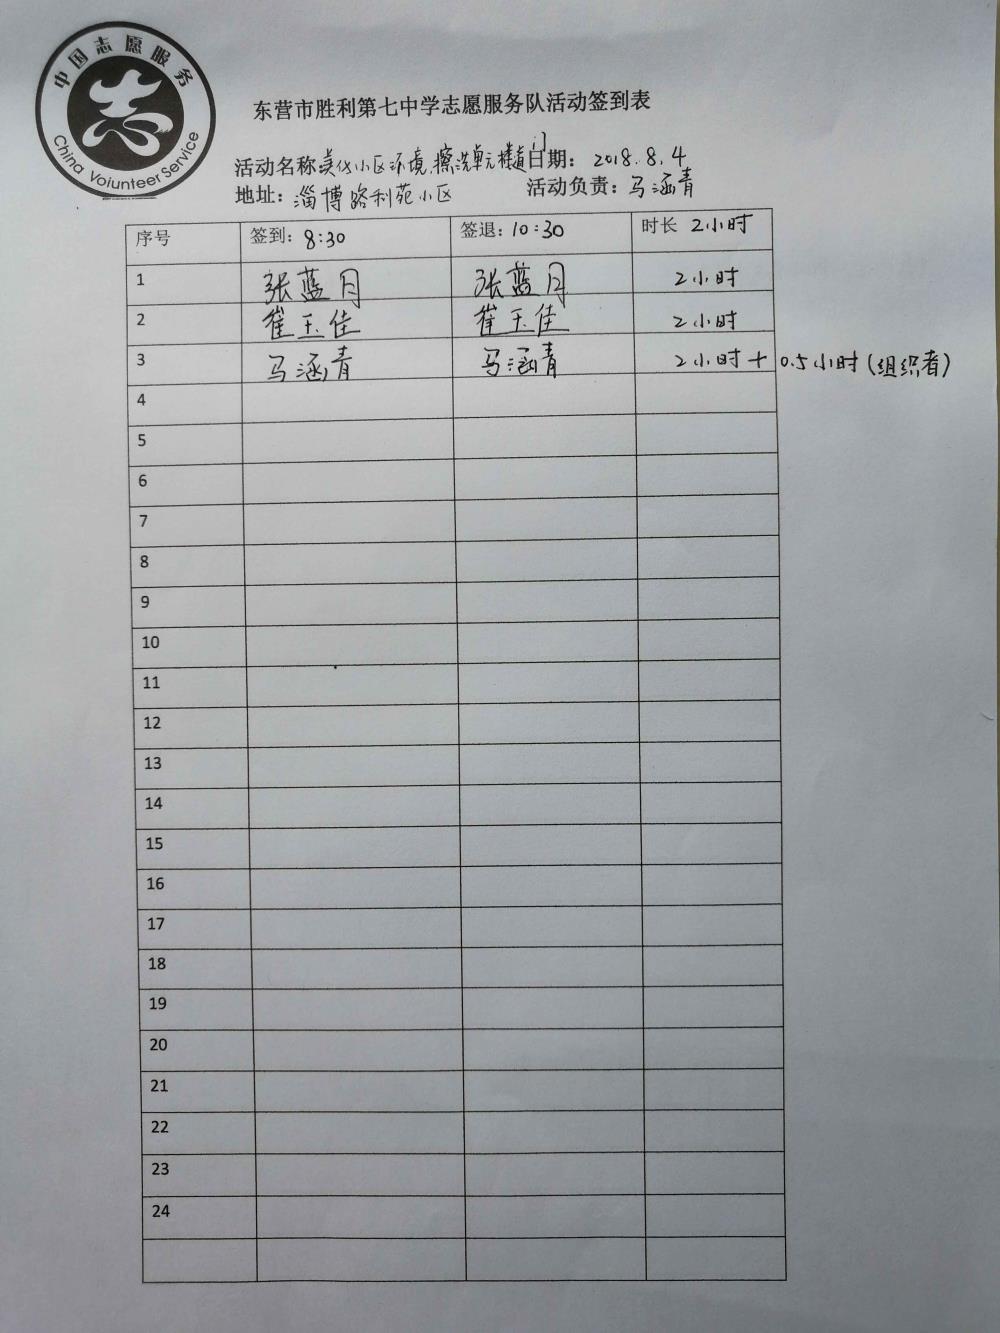 中国志愿服务
China Voiunteer Service
东营市胜利第七中学志愿服务队活动签到表
活动名称美化小区环境,擦洗单元楼道门日期：2018.8.4
地址：淄博路利苑小区 活动负责：马涵青
序号 签到：8:30 签退：10:30 时长 2小时
1 张蓝月 张蓝月 2小时
2 崔玉佳 崔玉佳 2小时
3 马涵青 马涵青 2小时+0.5小时(组织者)
4
5
6
7
8
9
10
11
12
13
14
15
16
17
18
19
20
21
22
23
24